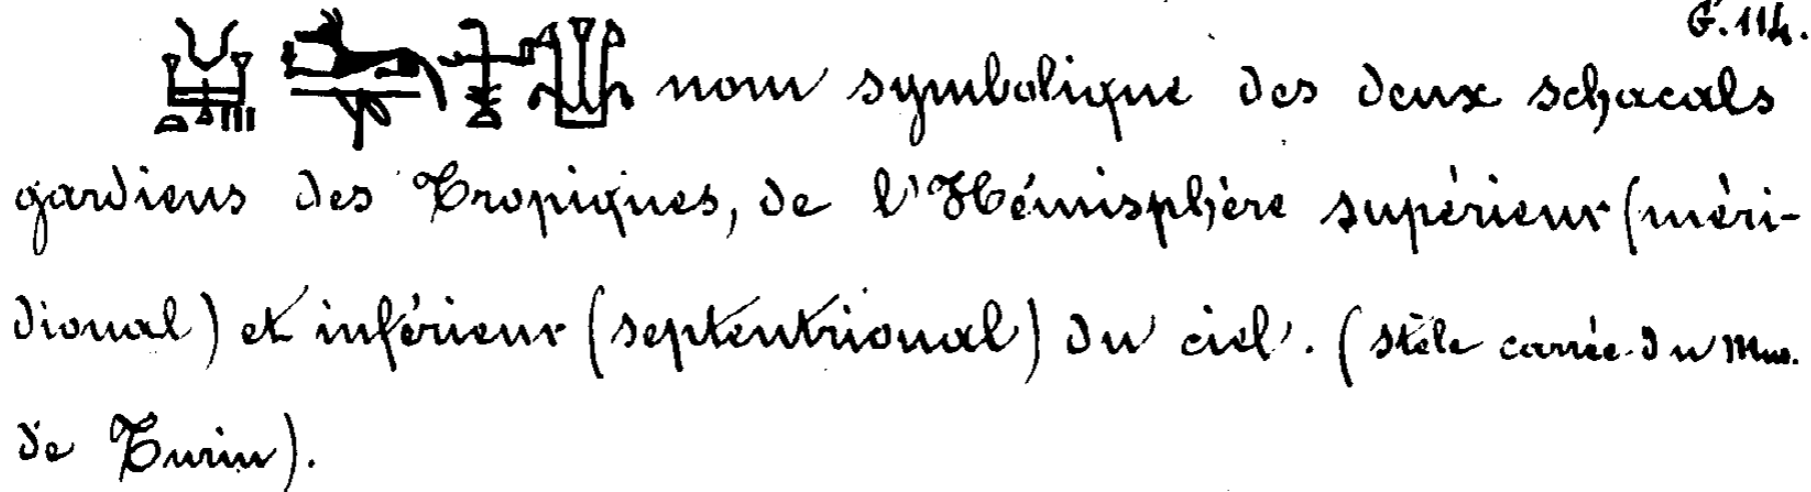 G. 114.
nom symbolique des deux schacals
gardiens des Tropiques, de l'Hémisphère supérieur (méri-
dional) et inférieur (septentrional) du ciel. (stèle carrée du Mus.
de Turin).